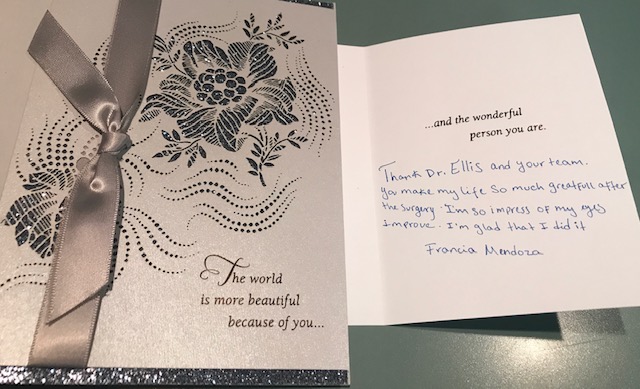 The world
is more beautiful
because of you...
...and the wonderful
person you are.
Thank Dr. Ellis and your team.
you make my life so much greatfull after
the surgery. I'm so impress of my eyes
Improve. I'm glad that I did it
Francia Mendoza